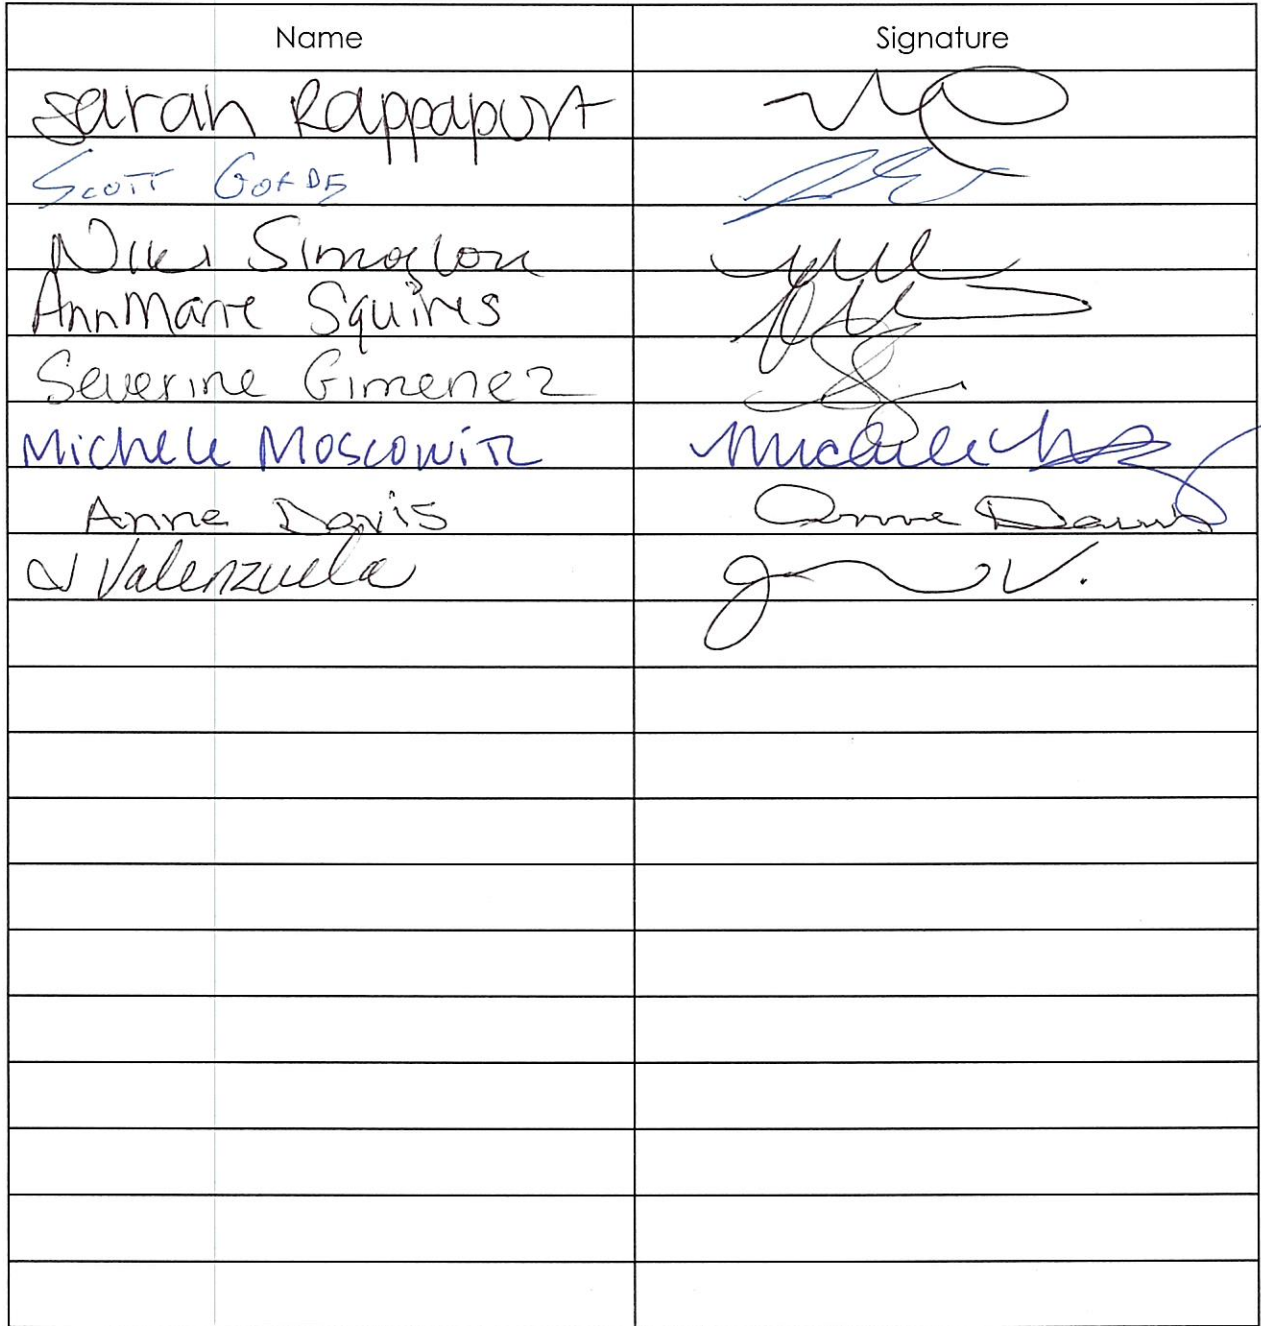 Name Signature
Sarah Rappaport
Scott
Niki Simoglou
AnnMarie Squires
Severine Gimenez
Michele Moscowitz Michele
Anne Davis Anne Davis
J Valenzuela J V.